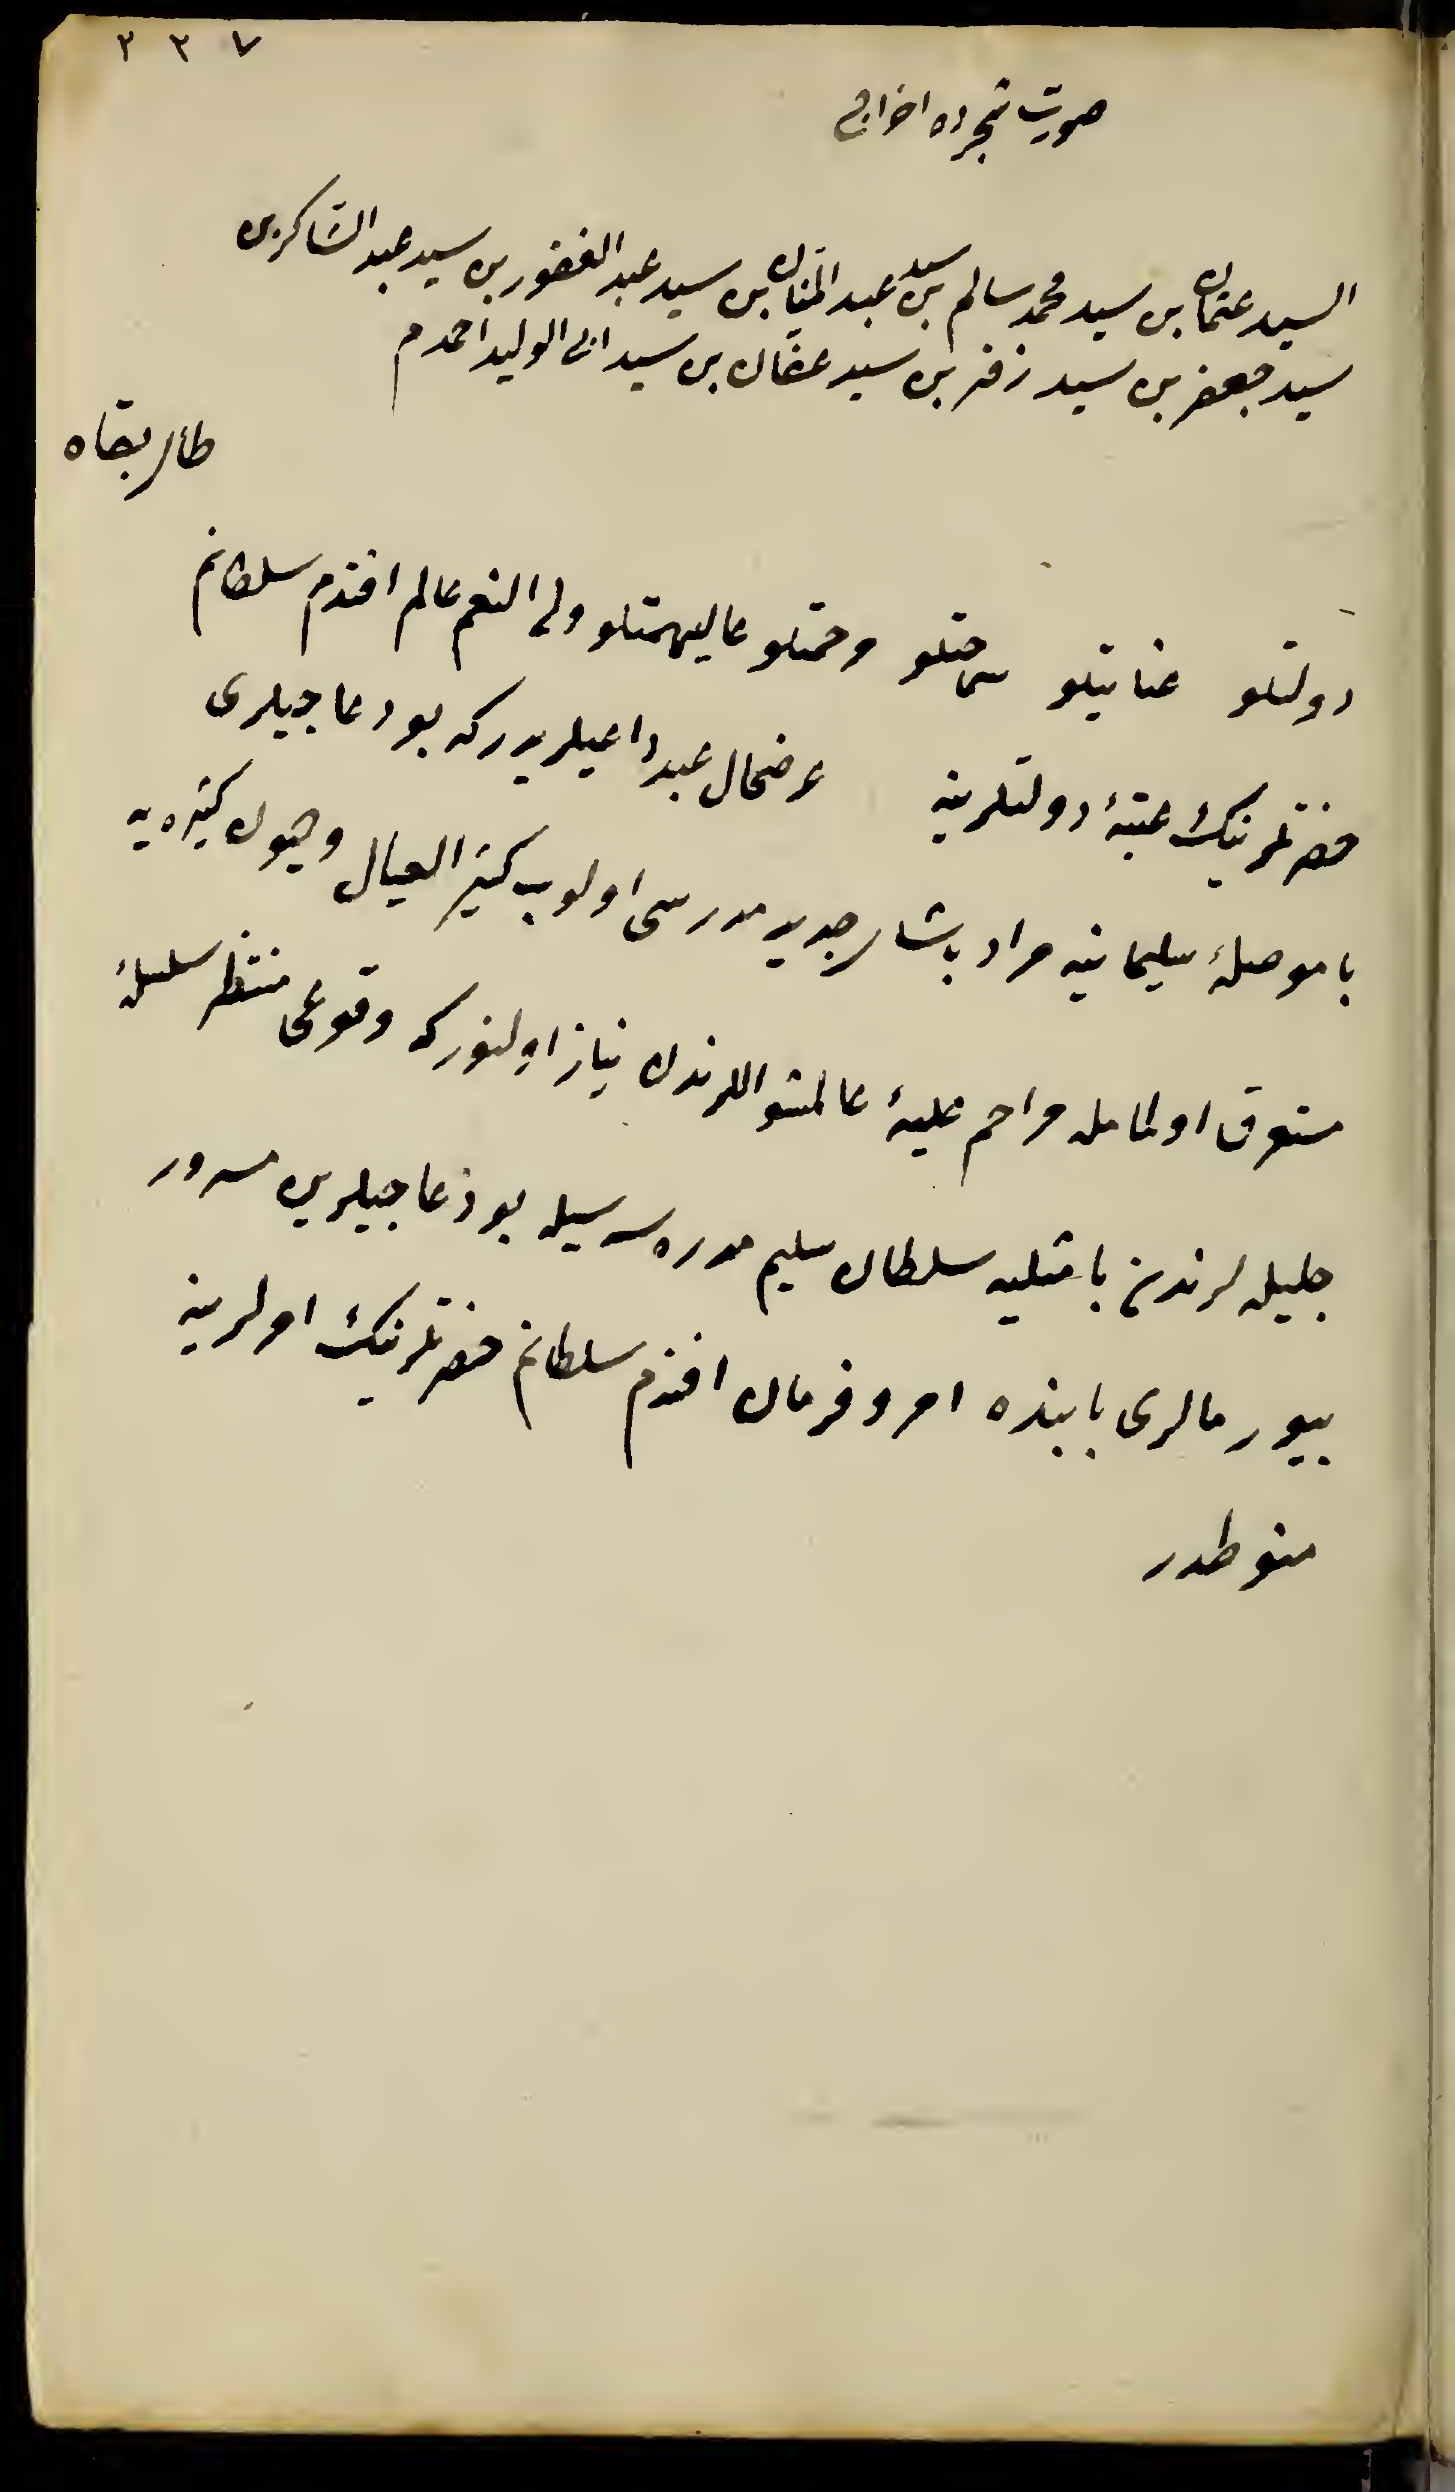 ٢٢٧
صورت شجره اخوابی
السيد عثمان بن سيد محمد سالم بن سيد عبد المنان بن سيد عبد الغفور بن سيد عبد الشاكر بن
سيد جعفر بن سيد زفر بن سيد عفان بن سيد ابی الوليد احمد م
طال بقاه
دولتلو عنايتلو سماحتلو مرحمتلو عاليهمتلو ولی النعم عالم افندم سلطانم
حضرتلرينك عتبۀ دولتلرينه عرضحال عبد داعيلريدركه بو دعاجيلری
با موصلۀ سليمانيه مراد پاشای جديد مدرسی اولوب كثير العيال و ديون كثيره يه
مستغرق اولمامله مراحم عليۀ عالمشمواللرندن نياز اولنوركه وقوعی منتظر سلسلۀ
جليله لرندن باشليه سلطان سليم مدره سه سيله بو دعاجيلرين مسرور
بيورمالری بابنده امر و فرمان افندم سلطانم حضرتلرينك امرلرينه
منوطدر